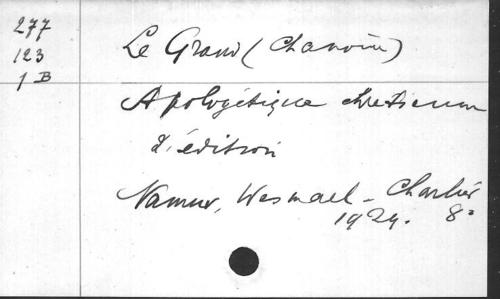 277
123
1 B
Le Grand (Chanoine)
Apologétique chrétienne
2. édition
Namur, Wesmael - Charlier
1924. 8°